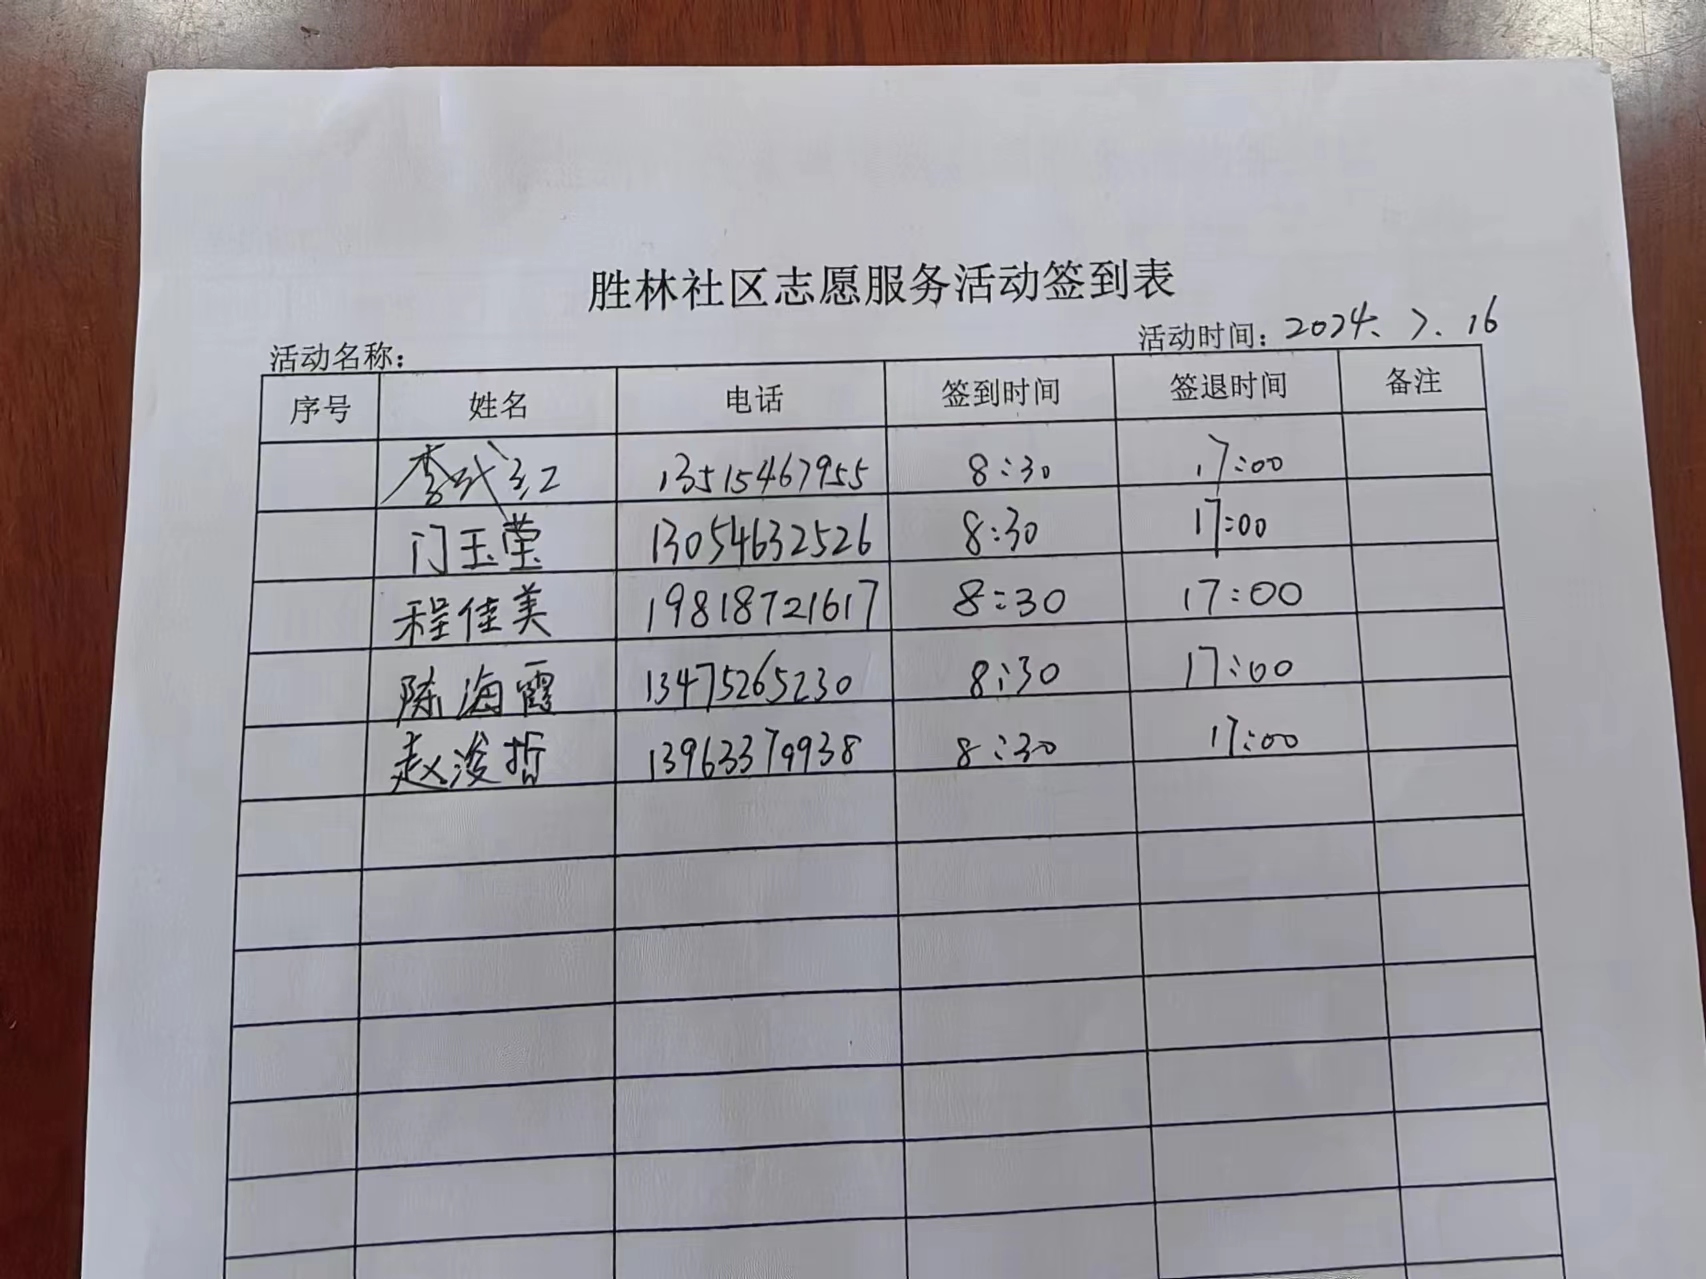 胜林社区志愿服务活动签到表
活动名称： 活动时间：2024.7.16
序号 姓名 电话 签到时间 签退时间 备注
李代红 13515467955 8:30 17:00
门玉莹 13054632526 8:30 17:00
程佳美 19818721617 8:30 17:00
陈海霞 13475265230 8:30 17:00
赵浚哲 13963379938 8:30 17:00